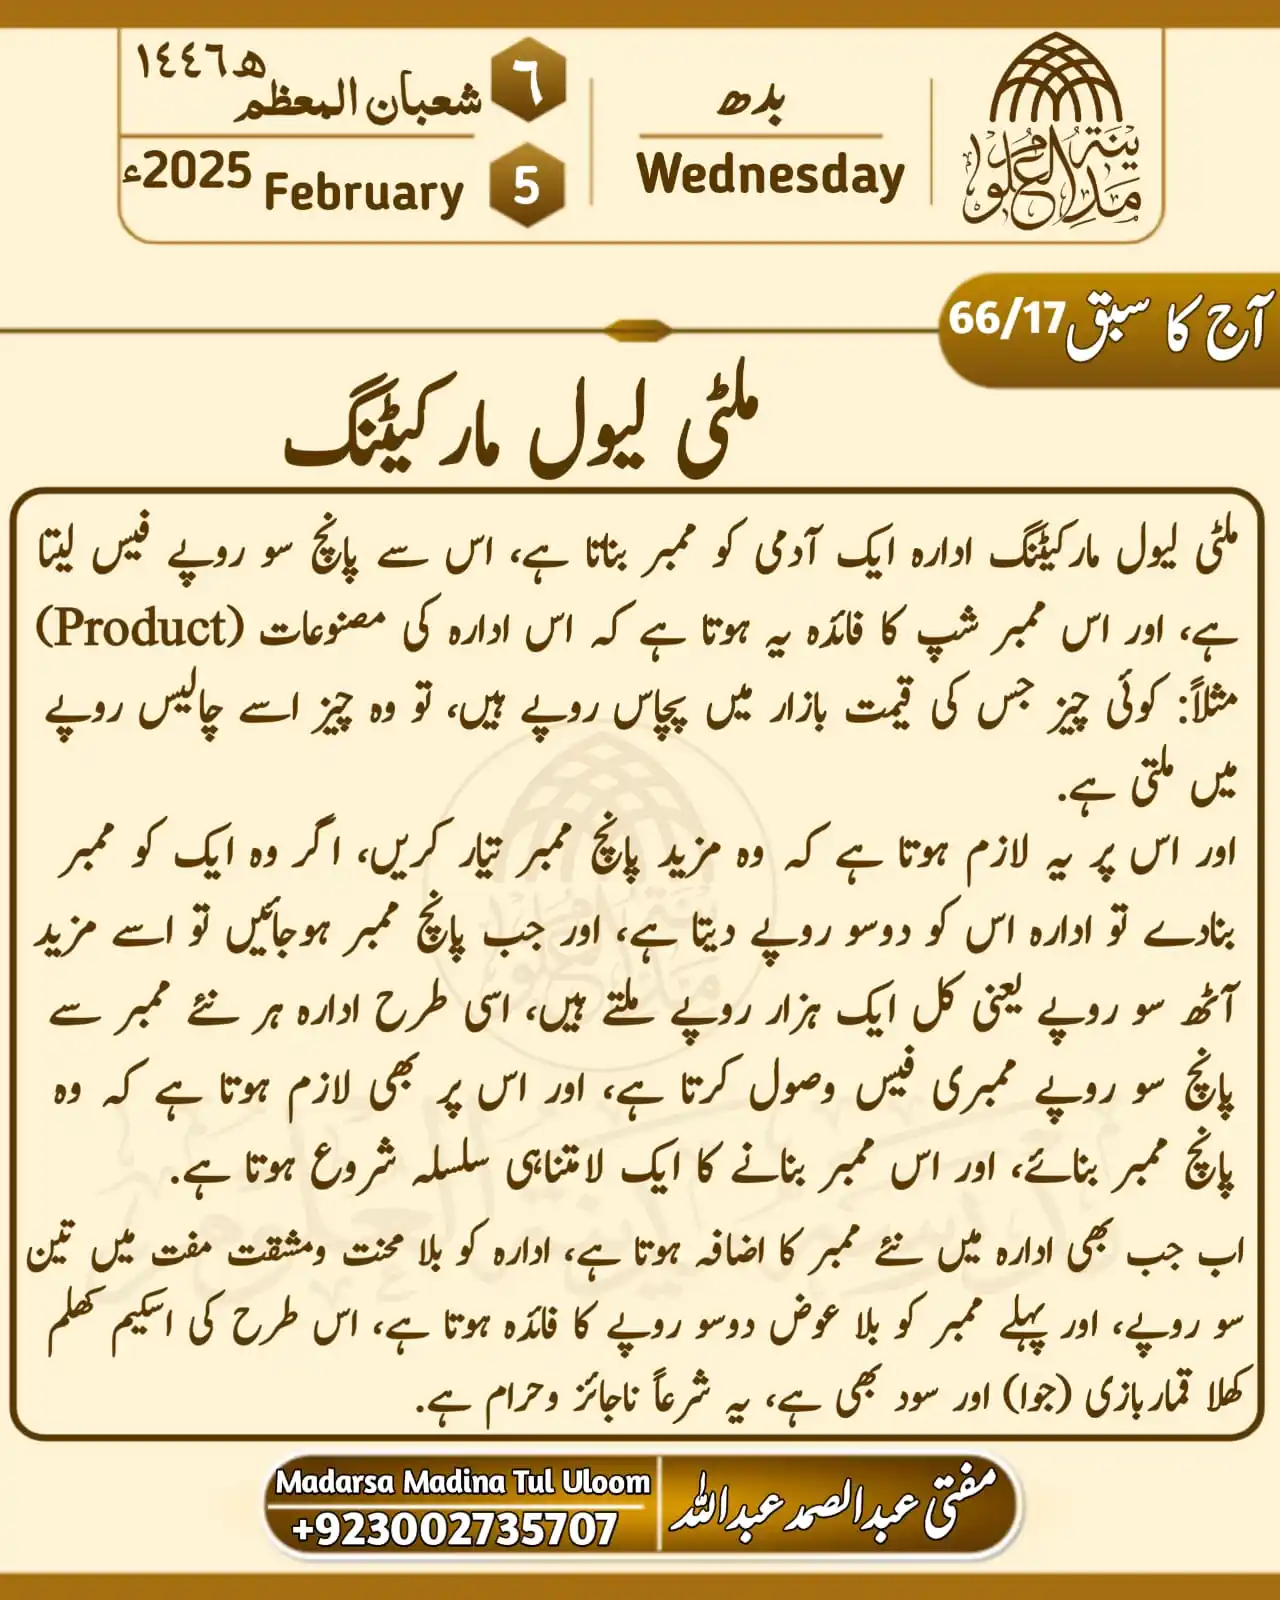 مدینۃ العلوم
بدھ
Wednesday
٦ شعبان المعظم ١٤٤٦ھ
5 February 2025ء
آج کا سبق 66/17
ملٹی لیول مارکیٹنگ
ملٹی لیول مارکیٹنگ ادارہ ایک آدمی کو ممبر بناتا ہے، اس سے پانچ سو روپے فیس لیتا
ہے، اور اس ممبر شپ کا فائدہ یہ ہوتا ہے کہ اس ادارہ کی مصنوعات (Product)
مثلاً: کوئی چیز جس کی قیمت بازار میں پچاس روپے ہیں، تو وہ چیز اسے چالیس روپے
میں ملتی ہے.
اور اس پر یہ لازم ہوتا ہے کہ وہ مزید پانچ ممبر تیار کریں، اگر وہ ایک کو ممبر
بنادے تو ادارہ اس کو دوسو روپے دیتا ہے، اور جب پانچ ممبر ہوجائیں تو اسے مزید
آٹھ سو روپے یعنی کل ایک ہزار روپے ملتے ہیں، اسی طرح ادارہ ہر نئے ممبر سے
پانچ سو روپے ممبری فیس وصول کرتا ہے، اور اس پر بھی لازم ہوتا ہے کہ وہ
پانچ ممبر بنائے، اور اس ممبر بنانے کا ایک لامتناہی سلسلہ شروع ہوتا ہے.
اب جب بھی ادارہ میں نئے ممبر کا اضافہ ہوتا ہے، ادارہ کو بلا محنت ومشقت مفت میں تین
سو روپے، اور پہلے ممبر کو بلا عوض دوسو روپے کا فائدہ ہوتا ہے، اس طرح کی اسکیم کھلم
کھلا قماربازی (جوا) اور سود بھی ہے، یہ شرعاً ناجائز وحرام ہے.
مفتی عبدالصمد عبداللہ
Madarsa Madina Tul Uloom
+923002735707